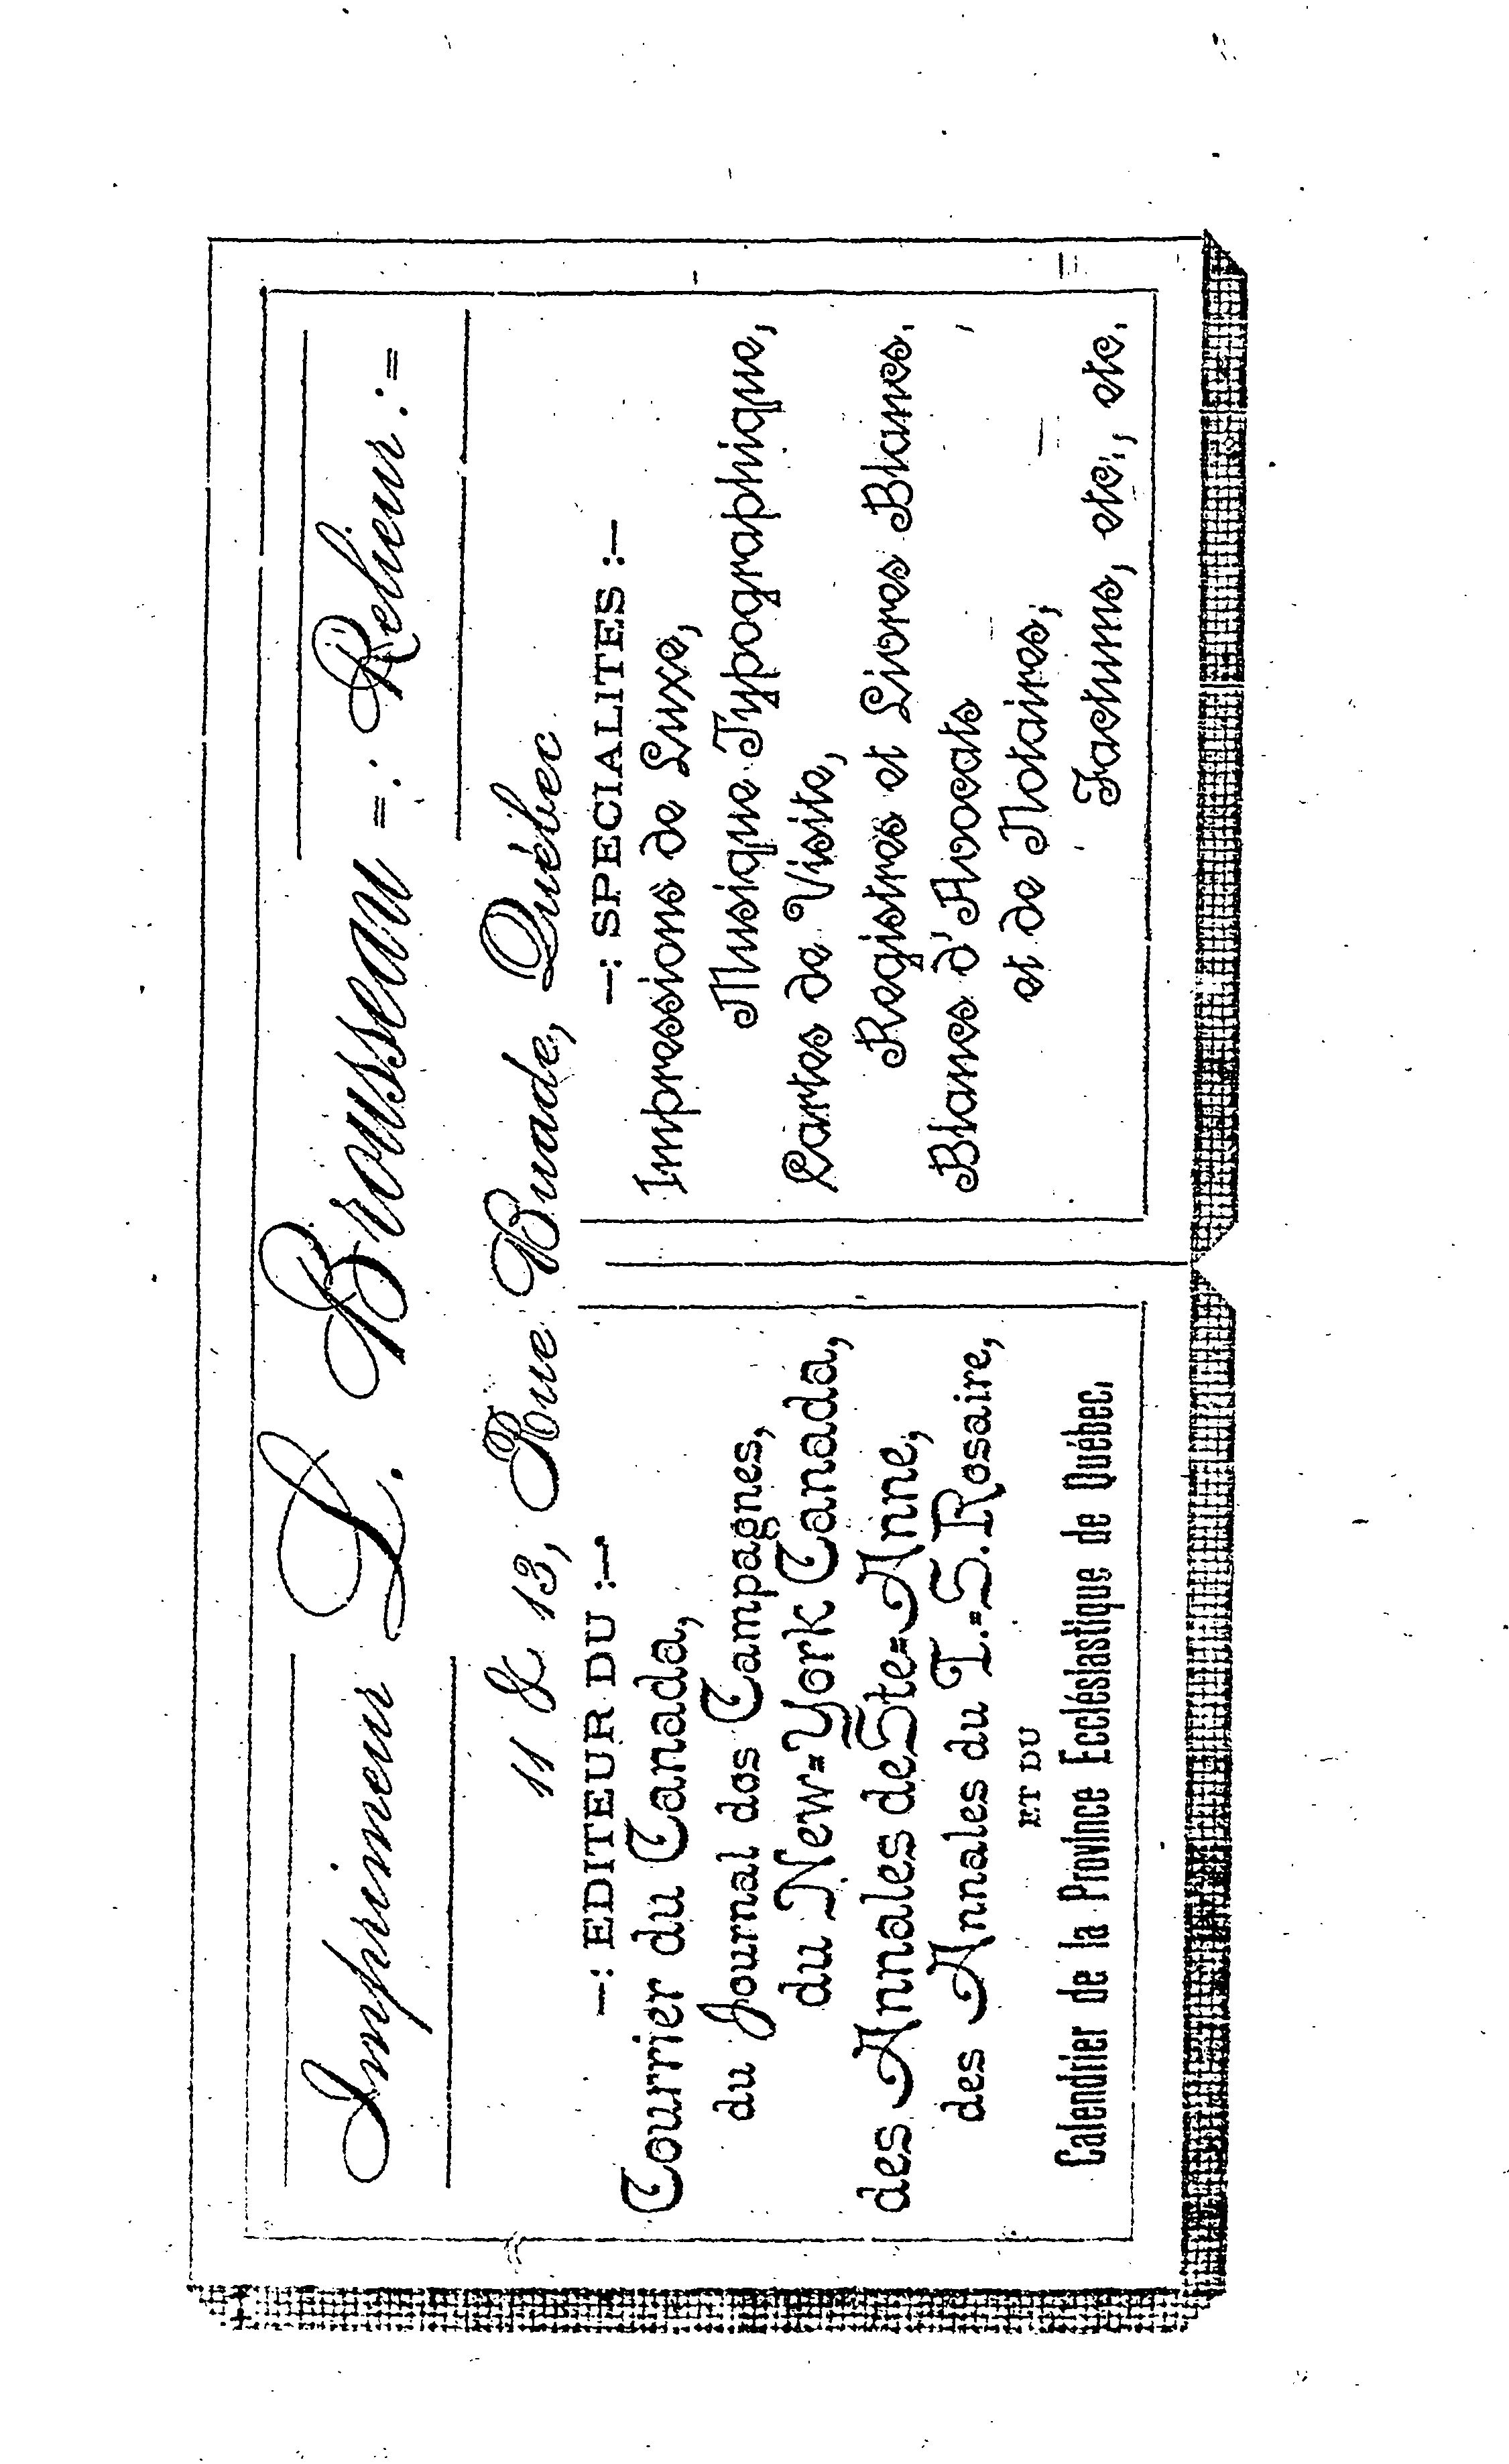 Imprimeur L. Brousseau =:· Relieur ·:=
11 & 13, Rue Buade, Québec
—: EDITEUR DU :—
Courrier du Canada,
du Journal des Campagnes,
du New=York Canada,
des Annales de Ste=Anne,
des Annales du T.=S. Rosaire,
ET DU
Calendrier de la Province Ecclésiastique de Québec.
—: SPECIALITES :—
Impressions de Luxe,
Musique Typographique,
Cartes de Visite,
Registres et Livres Blancs.
Blancs d'Avocats
et de Notaires,
Factums, etc., etc.